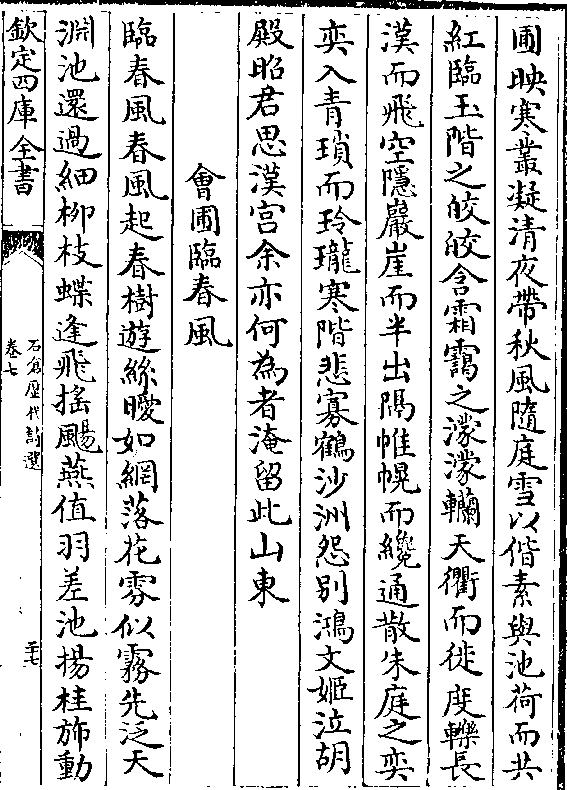 圃映寒叢凝清夜帶秋風隨庭雪以偕素與池荷而共
紅臨玉階之皎皎含霜靄之濛濛轥天衢而徙度轢長
漢而飛空隱巖崖而半出隔帷幌而纔通散朱庭之奕
奕入青瑣而玲瓏寒階悲寡鶴沙洲怨别鴻文姬泣胡
殿昭君思漢宫余亦何為者淹留此山東
會圃臨春風
臨春風春風起春樹遊絲曖如網落花雰似霧先泛天
淵池還過細柳枝蝶逢飛搖颺燕值羽差池揚桂斾動
欽定四庫全書
石倉歴代詩選
卷七
三十七